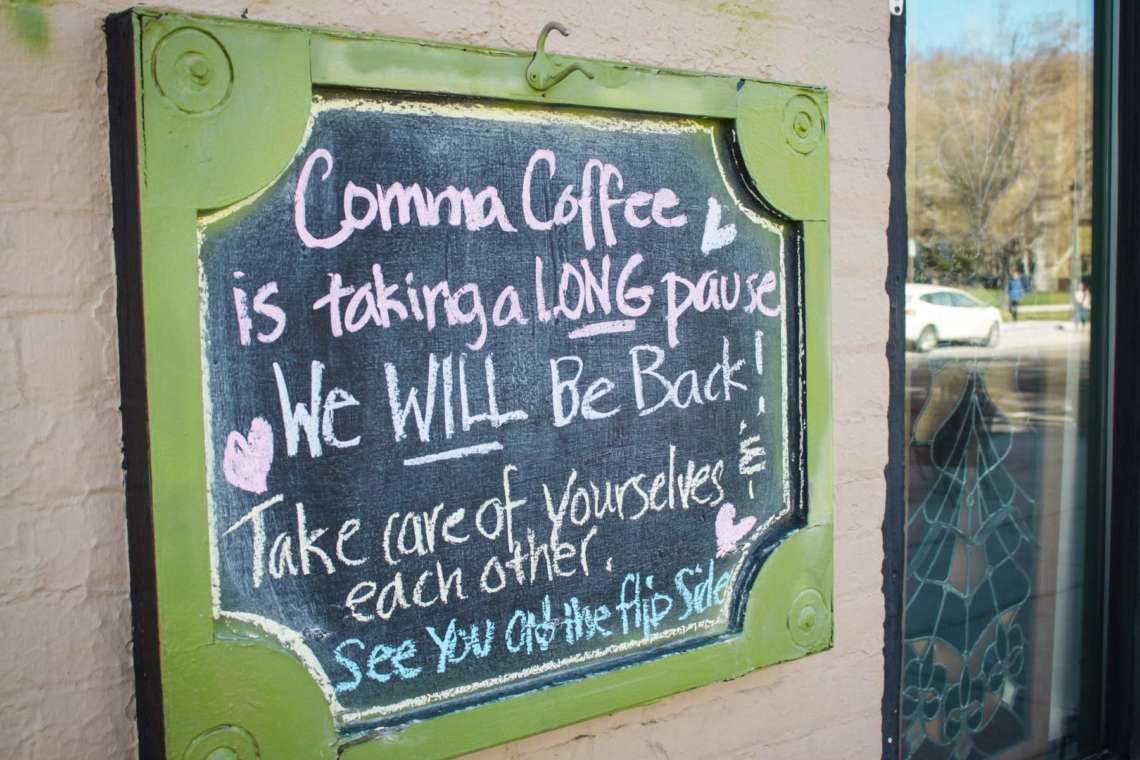 Comma Coffee
is taking a LONG pause
We WILL Be Back!
Take care of yourselves &
each other.
See You on the flip Side